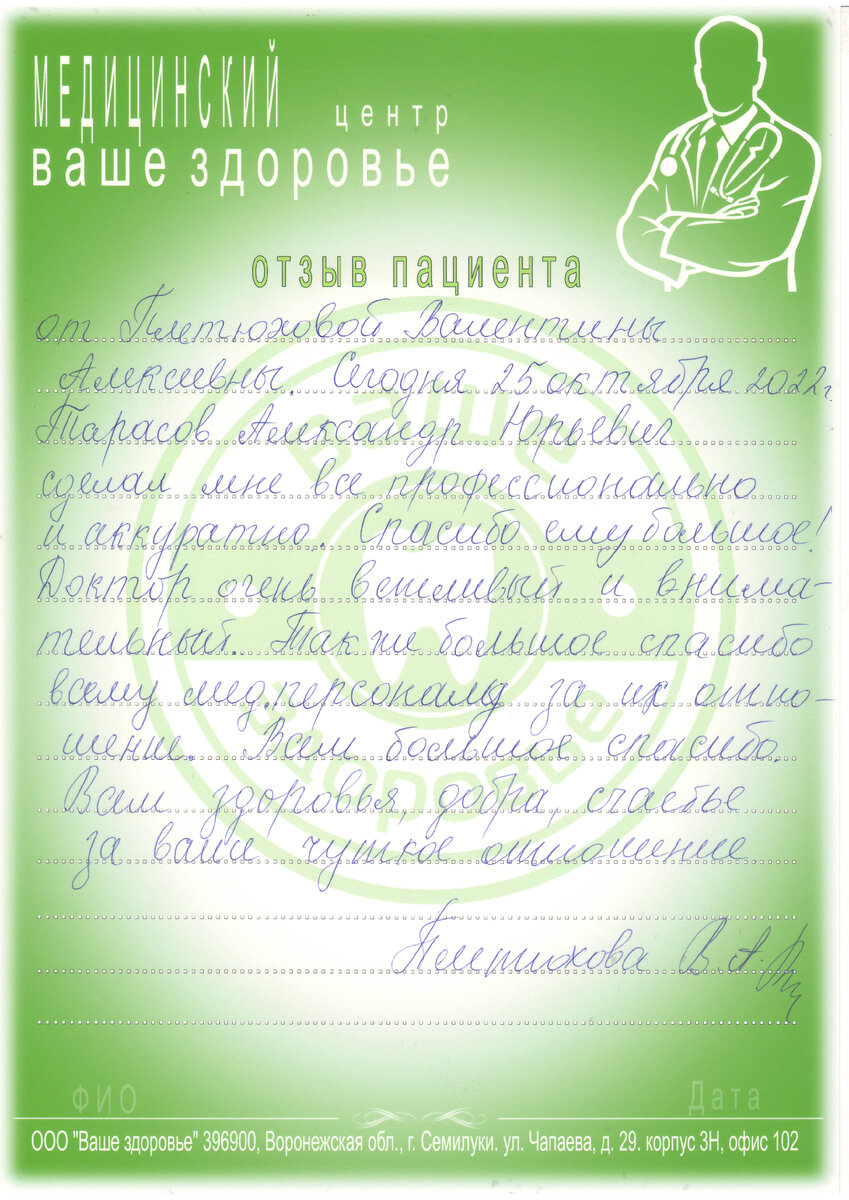 МЕДИЦИНСКИЙ центр
ваше здоровье
отзыв пациента
от Плетюховой Валентины
Алексеевны. Сегодня 25 октября 2022г.
Тарасов Александр Юрьевич
сделал мне все профессионально
и аккуратно. Спасибо ему большое!
Доктор очень вежливый и внима-
тельный. Так же большое спасибо
всему мед.персоналу за их отно-
шение. Вам большое спасибо.
Вам здоровья, добра, счастье
за ваше чуткое отношение
Плетюхова В.А.
ФИО Дата
ООО "Ваше здоровье" 396900, Воронежская обл., г. Семилуки. ул. Чапаева, д. 29. корпус 3Н, офис 102
ваше
здоровье